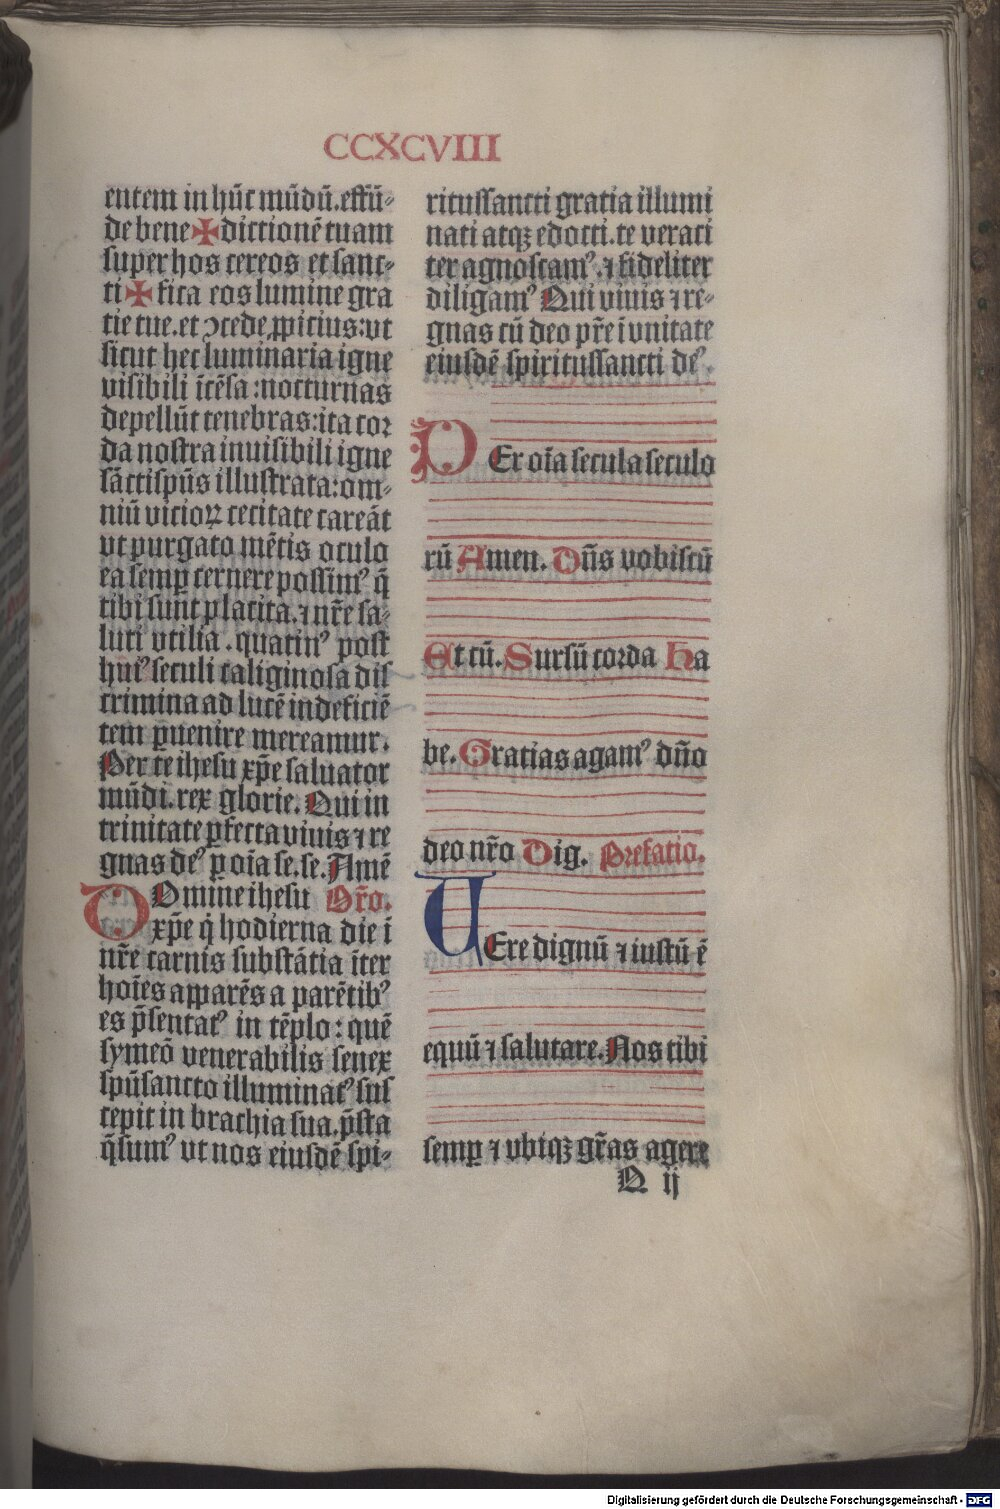 CCXCVIII
entem in hūc mūdū.effū-
de bene✠dictionē tuam
super hos cereos et sanc-
ti✠fica eos lumine gra
tie tue.et ↄcede ꝓpicius:vt
sicut hec luminaria igne
visibili īcēsa:nocturnas
depellūt tenebras:ita cor
da nostra inuisibili igne
sāctispūs illustrata:om-
niū vicioꝝ cecitate careāt
vt purgato mētis oculo
ea semꝑ cernere possimꝰ q̄
tibi sunt placita.⁊ nr̄e sa-
luti vtilia.quatinꝰ post
huiꝰ seculi caliginosa dis
crimina ad lucē indeficiē
tem ꝑuenire mereamur.
Per te ihesu xp̄e saluator
mūdi.rex glorie.Qui in
trinitate ꝑfecta viuis ⁊ re
gnas deꝰ ꝑ oīa se.se.Amē
DOmine ihesu Or̄o.
xp̄e q̇ hodierna die i
nr̄e carnis substātia īter
hoīes apparēs a parētibꝰ
es p̄sentatꝰ in tēplo:quē
symeō venerabilis senex
spūsancto illuminatꝰ sus
cepit in brachia sua.p̄sta
q̄sumꝰ vt nos eiusdē spi-
ritussancti gratia illumi
nati atqꝫ edocti.te veraci
ter agnoscamꝰ.⁊ fideliter
diligamꝰ Qui viuis ⁊ re-
gnas cū deo pr̄e ī vnitate
eiusdē spiritussancti deꝰ
PEr oīa secula seculo
rū Amen. Dn̄s vobiscū
Et cū.Sursū corda Ha
be.Gratias agamꝰ dn̄o
deo nr̄o Dig. Prefatio.
VEre dignū ⁊ iustū ē
equū ⁊ salutare.Nos tibi
semꝑ ⁊ vbiqꝫ gr̄as agere
N ij
Digitalisierung gefördert durch die Deutsche Forschungsgemeinschaft - DFG